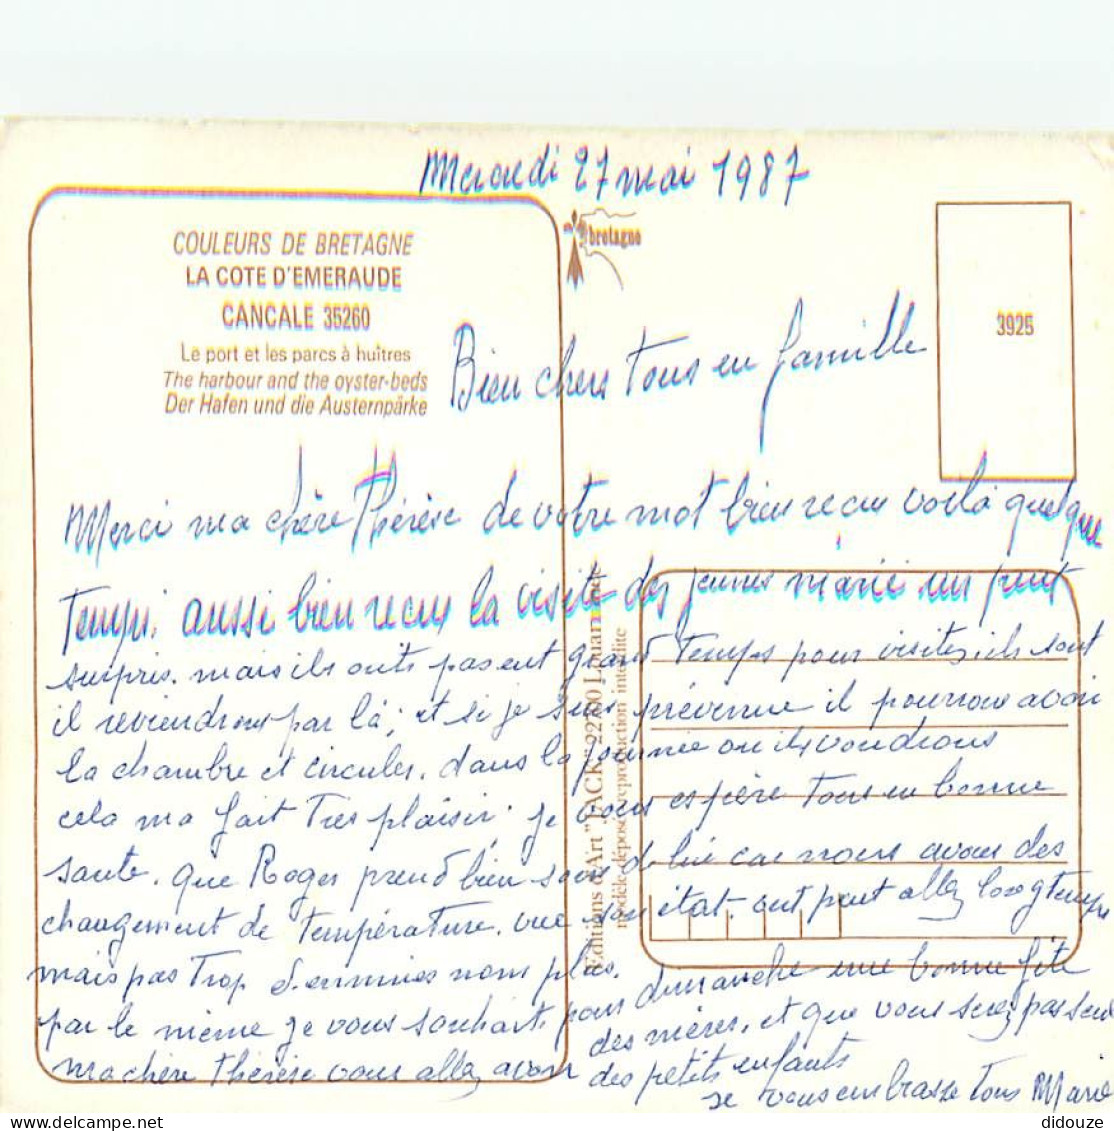 Mercredi 27 mai 1987
COULEURS DE BRETAGNE
LA COTE D'EMERAUDE
CANCALE 35260
Le port et les parcs à huîtres
The harbour and the oyster-beds
Der Hafen und die Austernpärke
bretagne
3925
Bien chers Tous en famille
Merci ma chère Thérèse de votre mot bien recus voilà quelque
Temps. aussi bien recus la visite des jeunes marié un peut
surpris. mais ils onts pas eut grand Temps pour visites, ils sont
il reviendrons par là, et si je suis prévenue il pourrons avoir
la chambre et circuler. dans la journée ou ils voudrons
cela ma fait Très plaisir, je vous espère Tous en bonne
sante. que Roger prend bien soin de lui car nous avons des
changement de Température. vue son état. ont peut allez longtemps
mais pas Trop d'ennuies non plus.
par le même je vous souhait, pour dimanche une bonne fête
des mères, et que vous serez pas seul
ma chère Thérèse vous allez avoir des petits enfants
je vous embrasse Tous Marie
Editions d'Art "JACK" 22700 Louannec
modèle déposé reproduction interdite
didouze